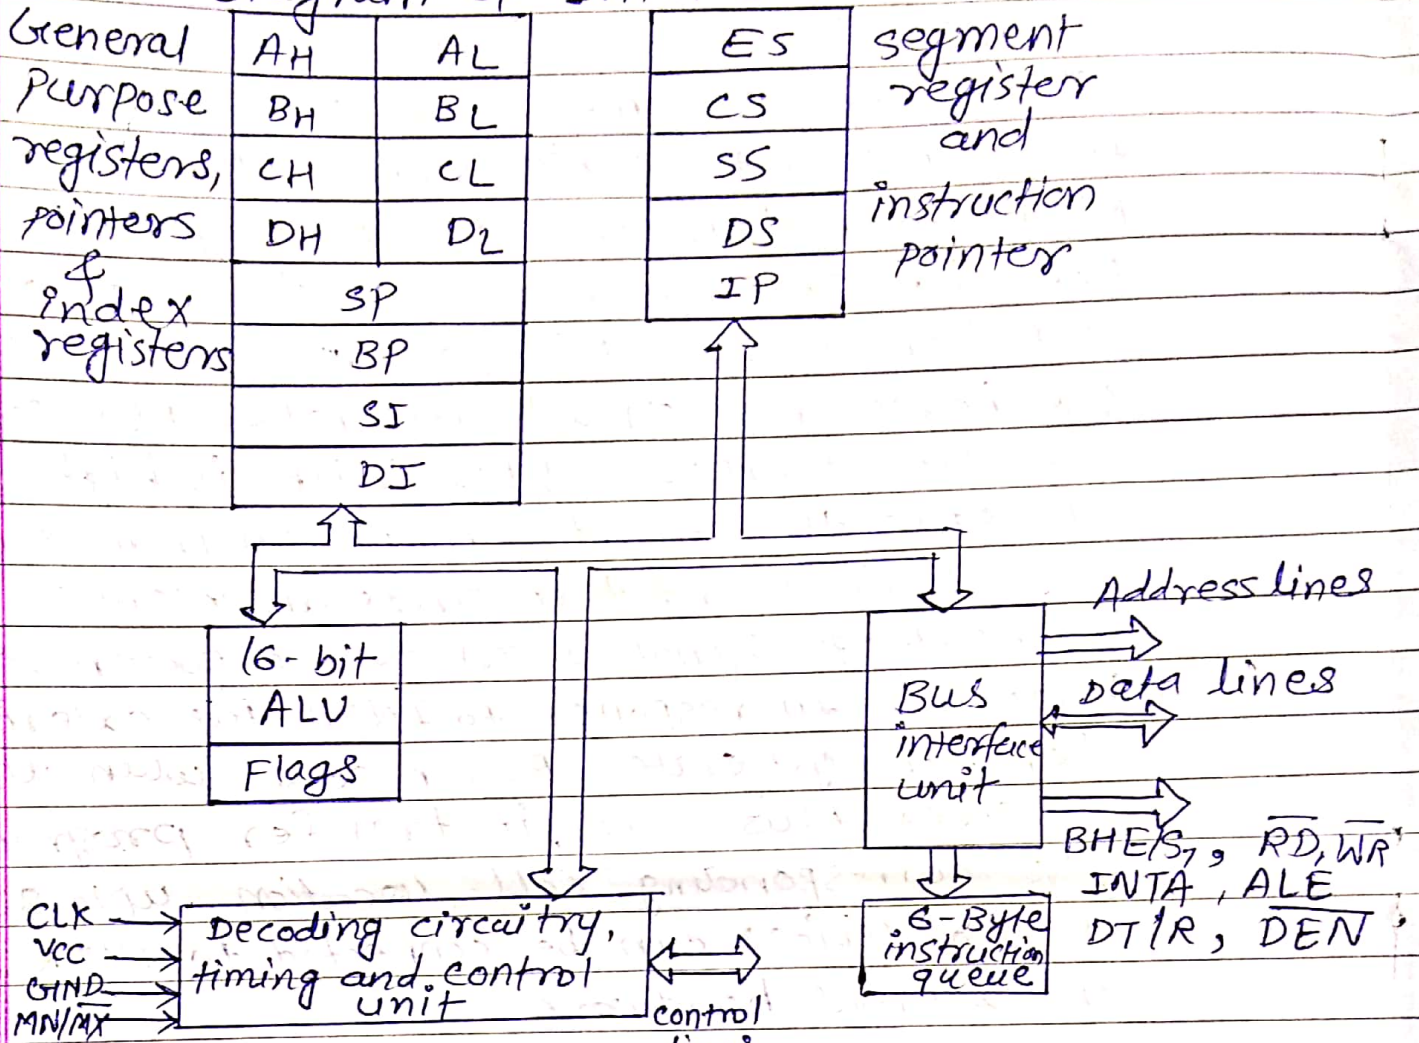 General
Purpose
registers,
pointers
&
index
registers
AH AL
BH BL
CH CL
DH DL
SP
BP
SI
DI
ES
CS
SS
DS
IP
segment
register
and
instruction
pointer
16-bit
ALU
Flags
Bus
interface
unit
Address lines
Data lines
BHE/S7, R̅D̅, W̅R̅
INTA, ALE
DT/R, D̅E̅N̅,
6-Byte
instruction
queue
CLK
VCC
GND
MN/M̅X̅
Decoding circuitry,
timing and control
unit
control